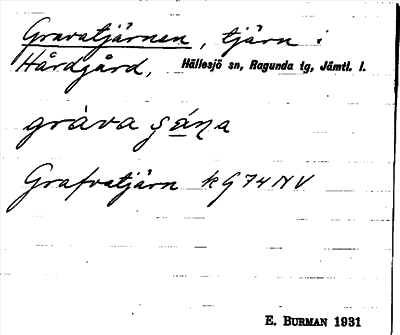 Gravatjärnen, tjärn i
Hårdgård, Hällesjö sn, Ragunda tg, Jämtl. l.
gràva ʂánа
Grafvatjärn k G 74 NV
E. BURMAN 1931